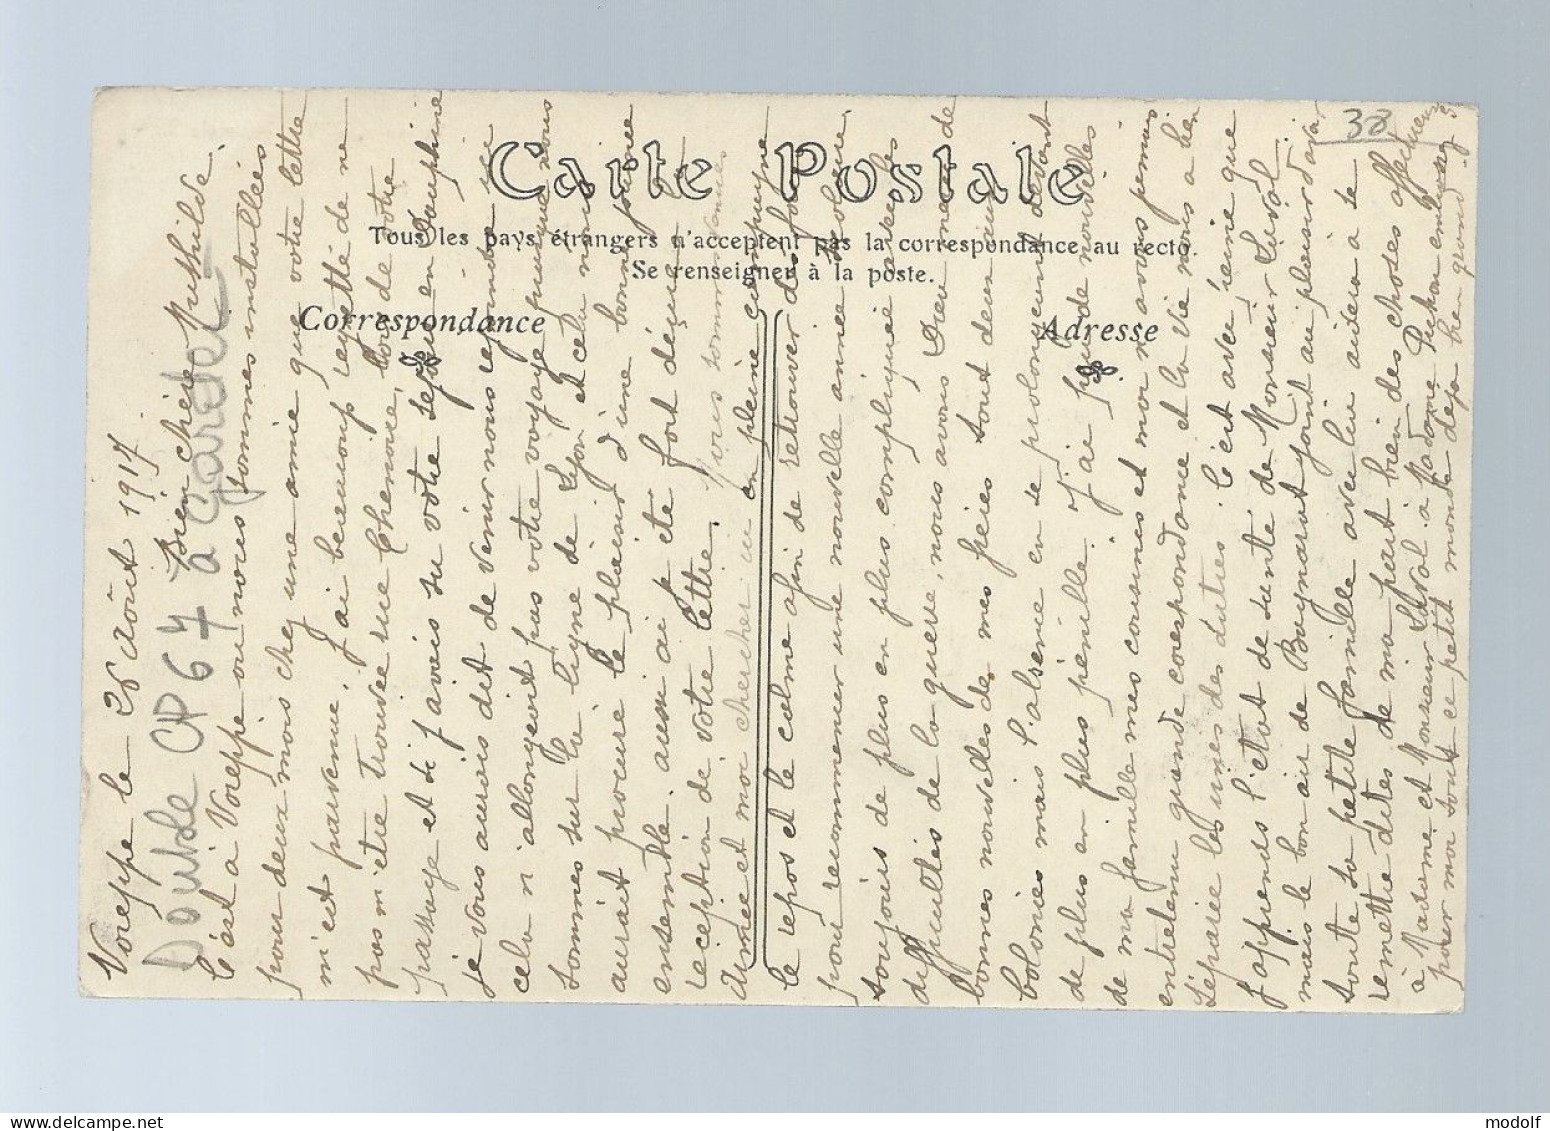 Carte Postale
Tous les pays étrangers n'acceptent pas la correspondance au recto.
Se renseigner à la poste.
Correspondance
Adresse
38
Double CP 67 a Garder
Voreppe le 26 août 1917
Bien chère Mathilde.
C'est à Voreppe où nous sommes installées
pour deux mois chez une amie que votre lettre
m'est parvenue. J'ai beaucoup regretté de ne
pas m'être trouvée rue Chenoise, lors de votre
passage et si j'avais su votre séjour en Dauphiné
je vous aurais dit de venir nous rejoindre ici
cela n'allongeait pas votre voyage puisque nous
sommes sur la ligne de Lyon et cela nous
aurait procuré le plaisir d'une bonne journée
ensemble. aussi ai-je été fort déçue à
réception de votre lettre. Nous sommes venues
Aimée et moi chercher ici en pleine campagne
le repos et le calme afin de retrouver des forces
pour recommencer une nouvelle année scolaire,
toujours de plus en plus compliquée avec les
difficultés de la guerre, nous avons Dieu merci de
bonnes nouvelles de mes frères tout deux aux
colonies mais l'absence en se prolongeant devient
de plus en plus pénible. J'ai peu de nouvelles
de ma famille mes cousines et moi n'avons jamais
entretenu grande correspondance et la vie nous a bien
séparées les unes des autres. C'est avec peine que
j'apprends l'état de santé de Monsieur Sivol
mais le bon air de joint au plaisir d'avoir
toute sa petite famille avec lui aidera à le
remettre dites de ma part bien des choses affectueuses
à Madame et Monsieur Sivol à Madame embrassez
pour moi tout ce petit monde déjà bien grand